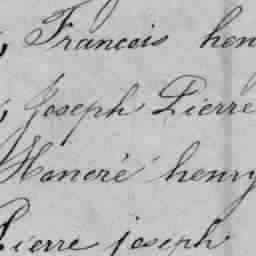 , Francois hen
, Joseph Pierre
Honoré henry
Pierre joseph